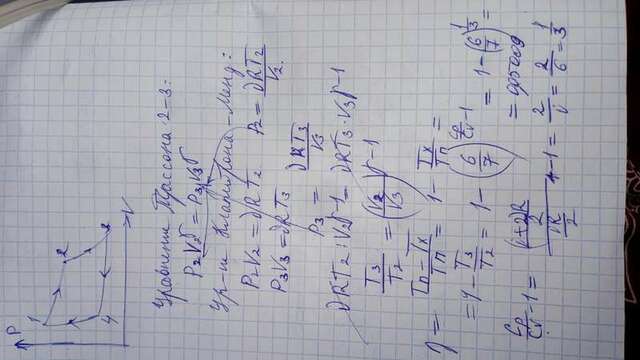 P
1
2
3
4
V
Уравнение Пуассона 2-3:
P₂V₂^γ = P₃V₃^γ
Ур-ие Клапейрона-Менд.:
P₂V₂ = νRT₂ P₂ = νRT₂/V₂
P₃V₃ = νRT₃
P₃ = νRT₃/V₃
νRT₂ · V₂^γ-1 = νRT₃ · V₃^γ-1
T₃/T₂ = (V₂/V₃)^γ-1
η = (Tн - Tх)/Tн = 1 - Tх/Tн =
= 1 - T₃/T₂ = 1 - (6/7)^(Cp/Cv - 1) = 1 - (6/7)^1/3 =
= 0,05009
Cp/Cv - 1 = ((i+2)R/2)/(iR/2) - 1 = 2/i = 2/6 = 1/3